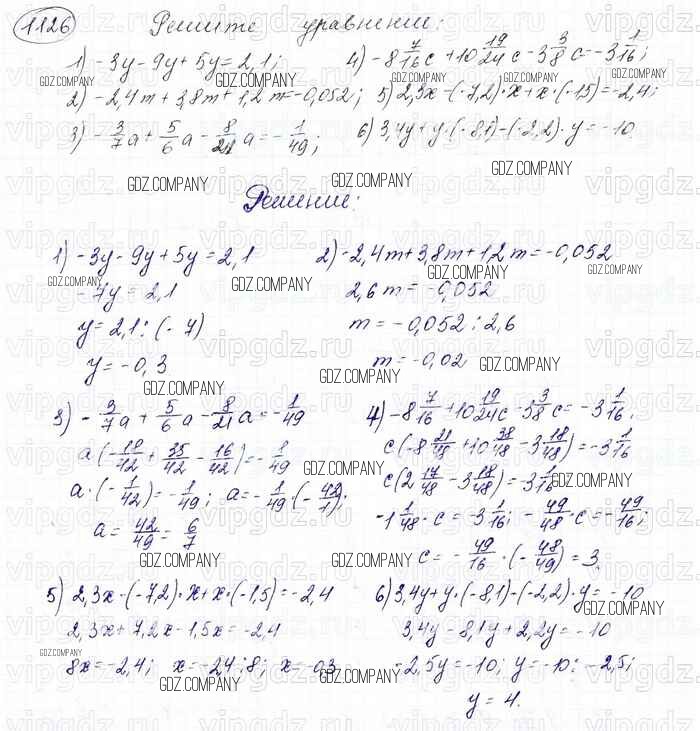 1126) Решите уравнения:
1) -3y-9y+5y=2,1; 4) -8 7/16 c+10 19/24 c-3 3/8 c=-3 1/16;
2) -2,4m+3,8m+1,2m=-0,052; 5) 2,3x-(-7,2)·x+x·(-1,5)=-2,4;
3) -3/7 a+5/6 a-8/21 a=-1/49; 6) 3,4y+y·(-8,1)-(-2,2)·y=-10
Решение:
1) -3y-9y+5y=2,1
-7y=2,1
y=2,1:(-7)
y=-0,3
2) -2,4m+3,8m+1,2m=-0,052
2,6m=-0,052
m=-0,052:2,6
m=-0,02
3) -3/7 a+5/6 a-8/21 a=-1/49
a(-18/42+35/42-16/42)=-1/49
a·(-1/42)=-1/49; a=-1/49·(-42/1);
a=42/49=6/7
4) -8 7/16+10 19/24 c-3 3/8 c=-3 1/16;
c(-8 21/48+10 38/48-3 18/48)=-3 1/16
c(2 17/48-3 18/48)=-3 1/16
-1 1/48·c=-3 1/16; -49/48·c=-49/16;
c=-49/16·(-48/49)=3.
5) 2,3x-(-7,2)·x+x·(-1,5)=-2,4
2,3x+7,2x-1,5x=-2,4
8x=-2,4; x=-2,4:8; x=-0,3
6) 3,4y+y·(-8,1)-(-2,2)·y=-10
3,4y-8,1y+2,2y=-10
-2,5y=-10; y=-10:-2,5;
y=4.
GDZ.COMPANY
vipgdz.ru